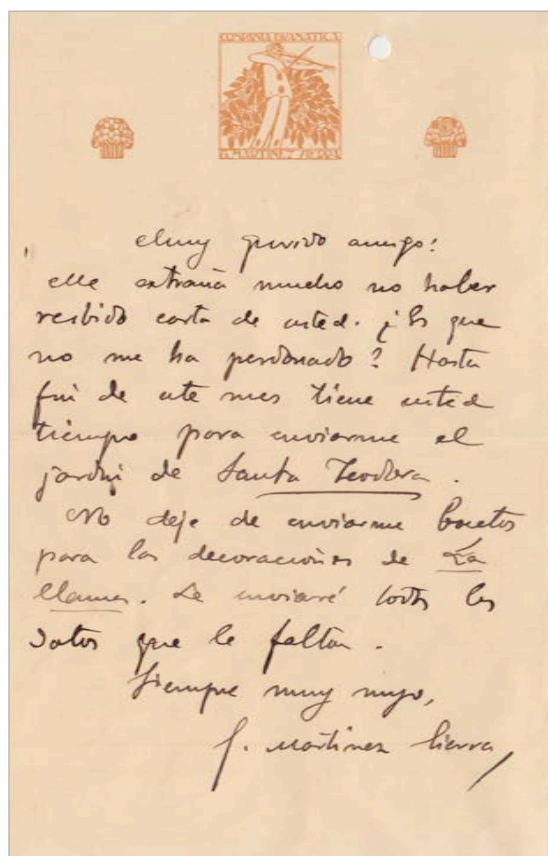 COMPAÑIA DRAMATICA
G. MARTINEZ SIERRA
Muy querido amigo:
Me extraña mucho no haber
recibido carta de usted. ¿Es que
no me ha perdonado? Hasta
fin de este mes tiene usted
tiempo para enviarme el
jardín de Santa Teodora.
No deje de enviarme bocetos
para las decoraciones de La
llama. Le enviaré todos los
datos que le faltan.
Siempre muy suyo,
G. Martinez Sierra